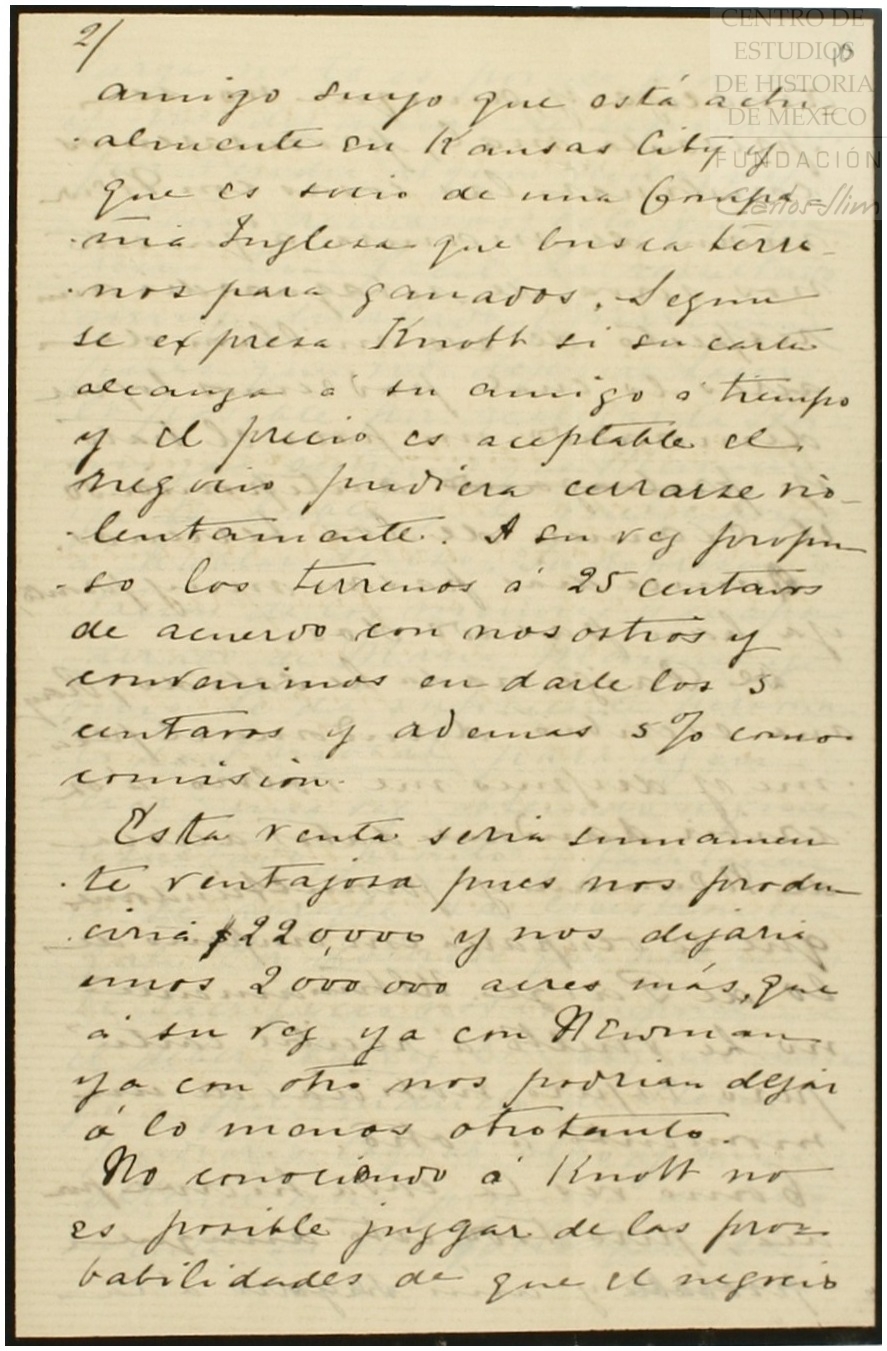 CENTRO DE
ESTUDIOS
DE HISTORIA
DE MÉXICO
FUNDACIÓN
Carlos Slim
2/
amigo suyo que está actu-
almente en Kansas City y
que es socio de una Compa-
ñia Inglesa que busca terre-
nos para ganados. Segun
se expresa Knott si su carta
alcanza á su amigo á tiempo
y el precio es aceptable el
negocio pudiera cerrarse vio-
lentamente. A su vez propu-
so los terrenos á 25 centavos
de acuerdo con nosostros y
convenimos en darle los 5
centavos y ademas 5% como
comision.
Esta venta seria sumamen
te ventajosa pues nos produ-
ciria $220,000 y nos dejaria
unos 2000000 acres más, que
á su vez ya con Newman
ya con otro nos podrian dejar
á lo menos otrotanto.
No conociendo á Knott no
es posible juzgar de las pro-
babilidades de que el negocio